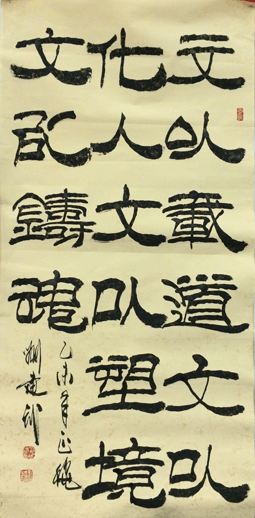 文以載道文以
化人文以塑境
文以鑄魂
乙未